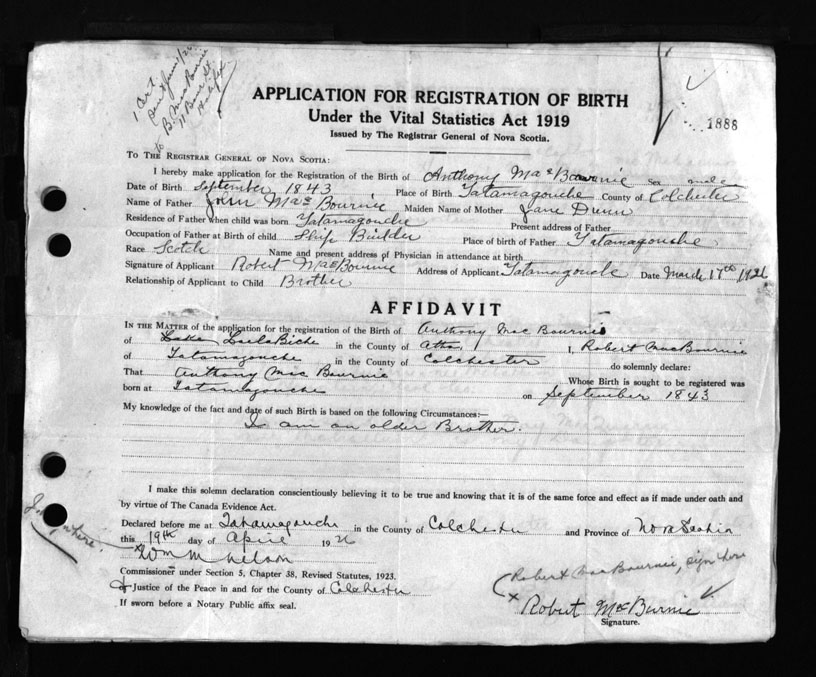 1 Cert
to B. MacBurnie
APPLICATION FOR REGISTRATION OF BIRTH
Under the Vital Statistics Act 1919
Issued by The Registrar General of Nova Scotia.
1888
To The Registrar General of Nova Scotia:
I hereby make application for the Registration of the Birth of Anthony MacBournie sex male
Date of Birth September 1843 Place of Birth Tatamagouche County of Colchester
Name of Father John MacBournie Maiden Name of Mother Jane Dunn
Residence of Father when child was born Tatamagouche Present address of Father
Occupation of Father at Birth of child Ship Builder Place of birth of Father Tatamagouche
Race Scotch Name and present address of Physician in attendance at birth
Signature of Applicant Robert MacBournie Address of Applicant Tatamagouche Date March 17th 1926
Relationship of Applicant to Child Brother
AFFIDAVIT
In the Matter of the application for the registration of the Birth of Anthony Mac Bournie
of Lake in the County of I, Robert MacBournie
of Tatamagouche in the County of Colchester do solemnly declare:
That Anthony Mac Bournie Whose Birth is sought to be registered was
born at Tatamagouche on September 1843
My knowledge of the fact and date of such Birth is based on the following Circumstances:—
I am an older Brother.
I make this solemn declaration conscientiously believing it to be true and knowing that it is of the same force and effect as if made under oath and
by virtue of The Canada Evidence Act.
Declared before me at Tatamagouche in the County of Colchester and Province of Nova Scotia
this 19th day of April 1926
Wm M Nelson
Commissioner under Section 5, Chapter 38, Revised Statutes, 1923.
of Justice of the Peace in and for the County of Colchester
If sworn before a Notary Public affix seal.
Robert MacBournie, sign here
x Robert McBurnie
Signature.